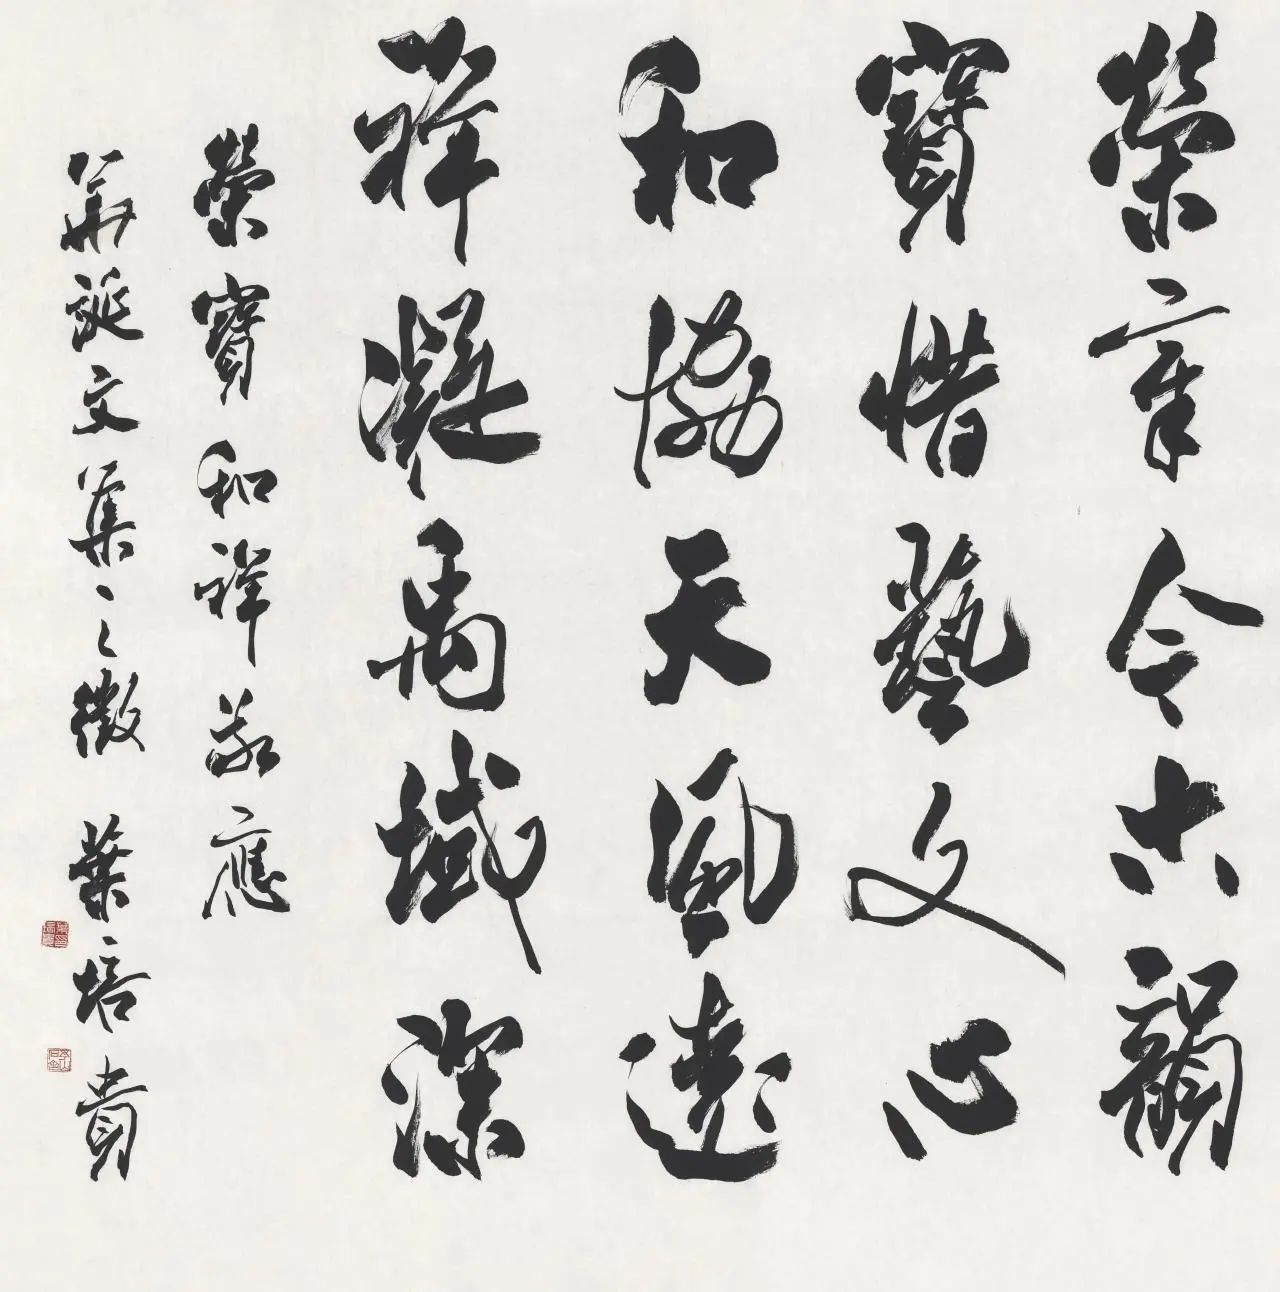 榮今古韻
寶惜藝文心
和協天風遠
祥凝禹域深
榮寶和祥敬應
華誕文集之徵 葉培貴